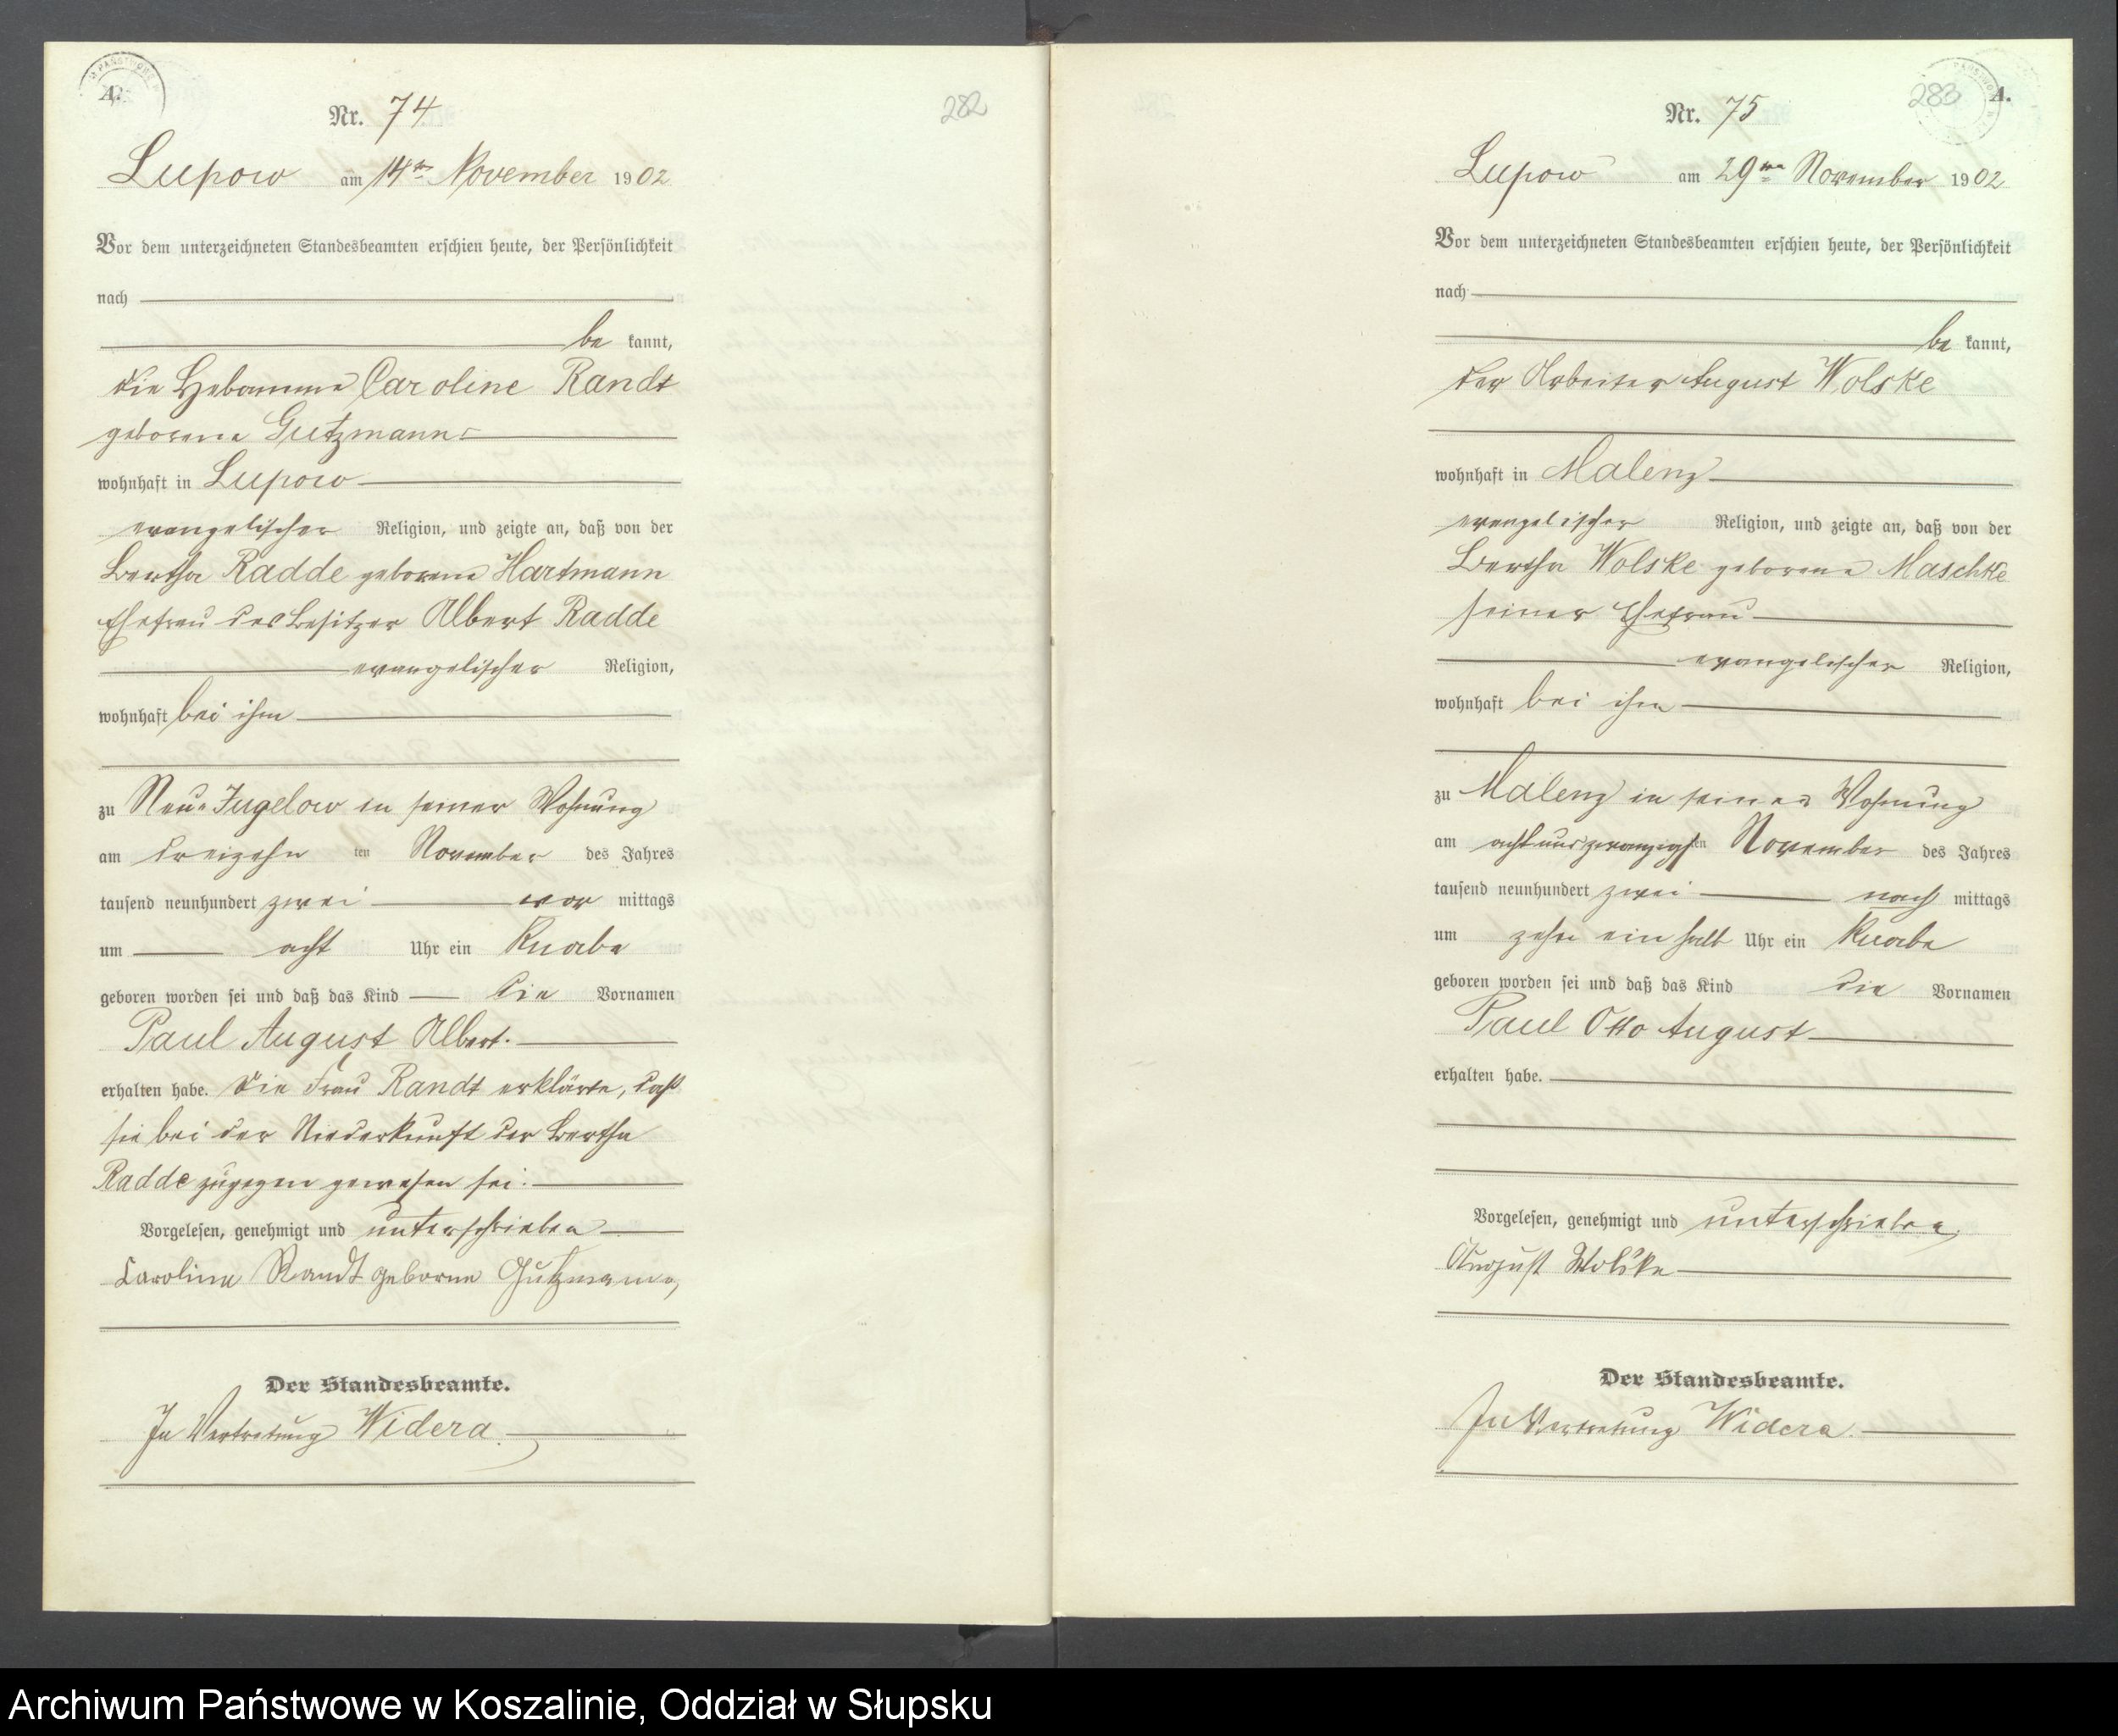 A.
282
Nr. 74
Lupow am 14ten November 1902
Vor dem unterzeichneten Standesbeamten erschien heute, der Persönlichkeit
nach
be kannt,
die Hebamme Caroline Randt
geborene Gutzmann
wohnhaft in Lupow
evangelischer Religion, und zeigte an, daß von der
Bertha Radde geborene Hartmann
Ehefrau des Besitzer Albert Radde
evangelischer Religion,
wohnhaft bei ihm
zu Neu-Jugelow in seiner Wohnung
am dreizehn ten November des Jahres
tausend neunhundert zwei vor mittags
um acht Uhr ein Knabe
geboren worden sei und daß das Kind die Vornamen
Paul August Albert.
erhalten habe. Die Frau Randt erklärte, daß
sie bei der Niederkunft der Bertha
Radde zugegen gewesen sei.
Vorgelesen, genehmigt und unterschrieben
Caroline Randt geborne Gutzmann,
Der Standesbeamte.
In Vertretung Widera.
283 A.
Nr. 75
Lupow am 29ten November 1902
Vor dem unterzeichneten Standesbeamten erschien heute, der Persönlichkeit
nach
be kannt,
der Arbeiter August Wolske
wohnhaft in Malenz
evangelischer Religion, und zeigte an, daß von der
Bertha Wolske geborene Maschke
seiner Ehefrau
evangelischer Religion,
wohnhaft bei ihm
zu Malenz in seiner Wohnung
am achtundzwanzigsten November des Jahres
tausend neunhundert zwei nach mittags
um zehn ein halb Uhr ein Knabe
geboren worden sei und daß das Kind die Vornamen
Paul Otto August
erhalten habe.
Vorgelesen, genehmigt und unterschrieben
August Wolske
Der Standesbeamte.
In Vertretung Widera.
Archiwum Państwowe w Koszalinie, Oddział w Słupsku